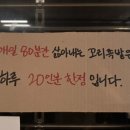 매일 80분간 삶아내는 꼬리수육은
하루 20인분 한정 입니다.